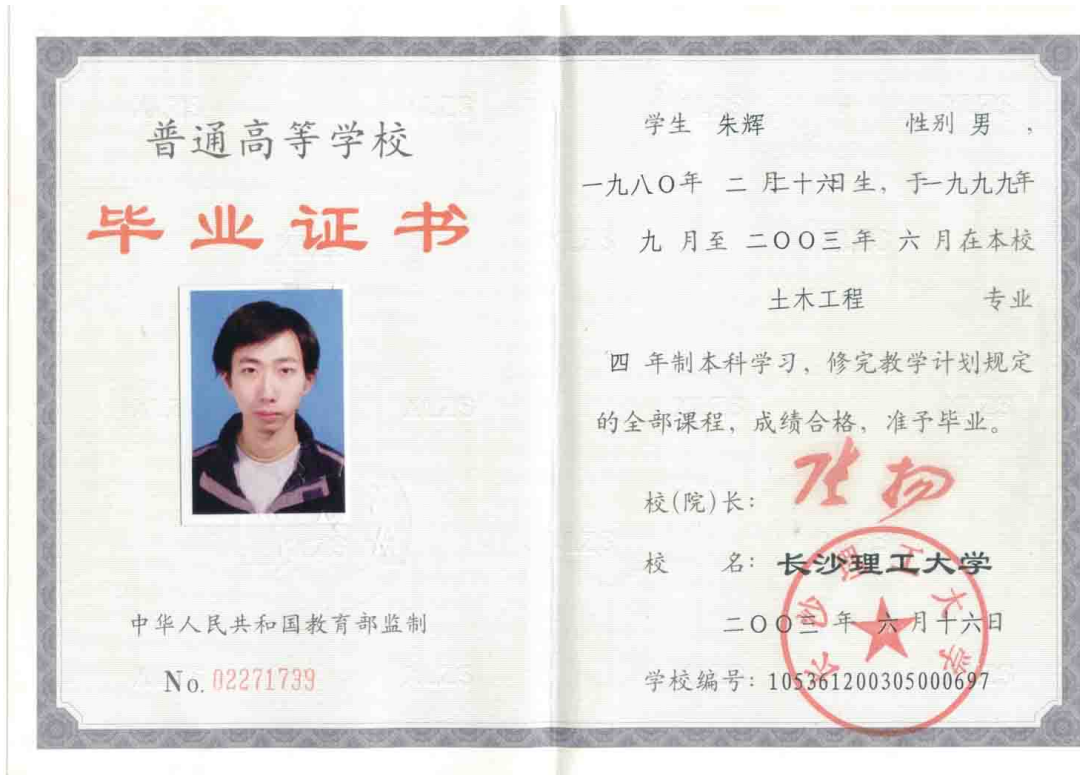 普通高等学校
毕业证书
中华人民共和国教育部监制
No. 02271739
学生 朱辉 性别 男 ,
一九八〇年 二 月二十六日生, 于一九九九年
九 月至 二〇〇三 年 六 月在本校
土木工程 专业
四 年制本科学习, 修完教学计划规定
的全部课程, 成绩合格, 准予毕业。
校(院)长:
校 名: 长沙理工大学
二〇〇三 年 六 月十六日
学校编号: 105361200305000697
长沙理工大学